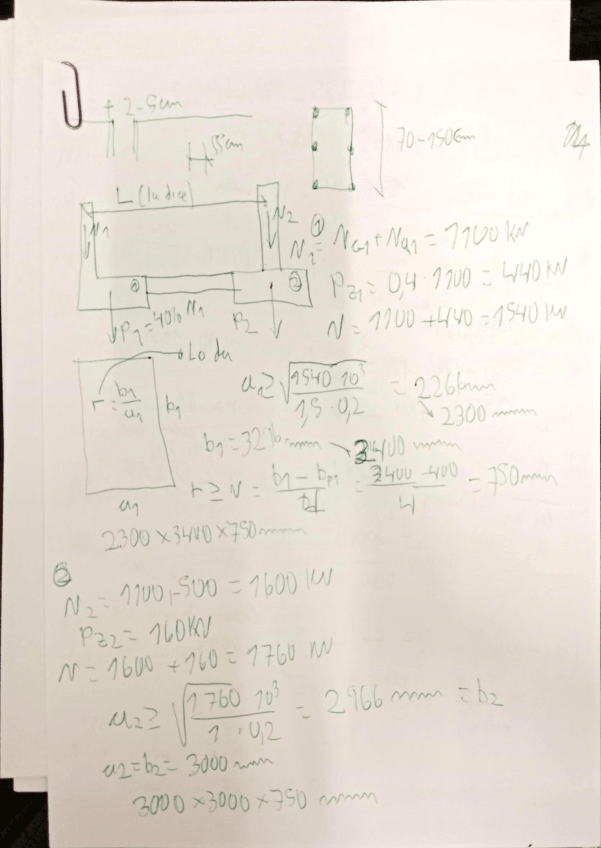 2-5cm
5cm
70-150cm
L (lu dice)
N1
N2
① N1 = NG1+NQ1 = 1100 kN
② PZ1 = 0,4 · 1100 = 440 kN
N = 1100 + 440 = 1540 kN
P1 = 40% N1
P2
r = b1/a1
b1
a1
a1 ≥ √(1540·10³/1,5·0,2) = 2266mm
2300 mm
b1 = 32 mm
3400 mm
r ≥ v = (b1 - bp1)/4 = (3400-400)/4 = 750mm
2300 x 3400 x 750 mm
②
N2 = 1100+500 = 1600 kN
PZ2 = 160KN
N = 1600 + 160 = 1760 kN
a2 ≥ √(1760·10³/1·0,2) = 2966 mm = b2
a2=b2= 3000 mm
3000 x 3000 x 750 mm